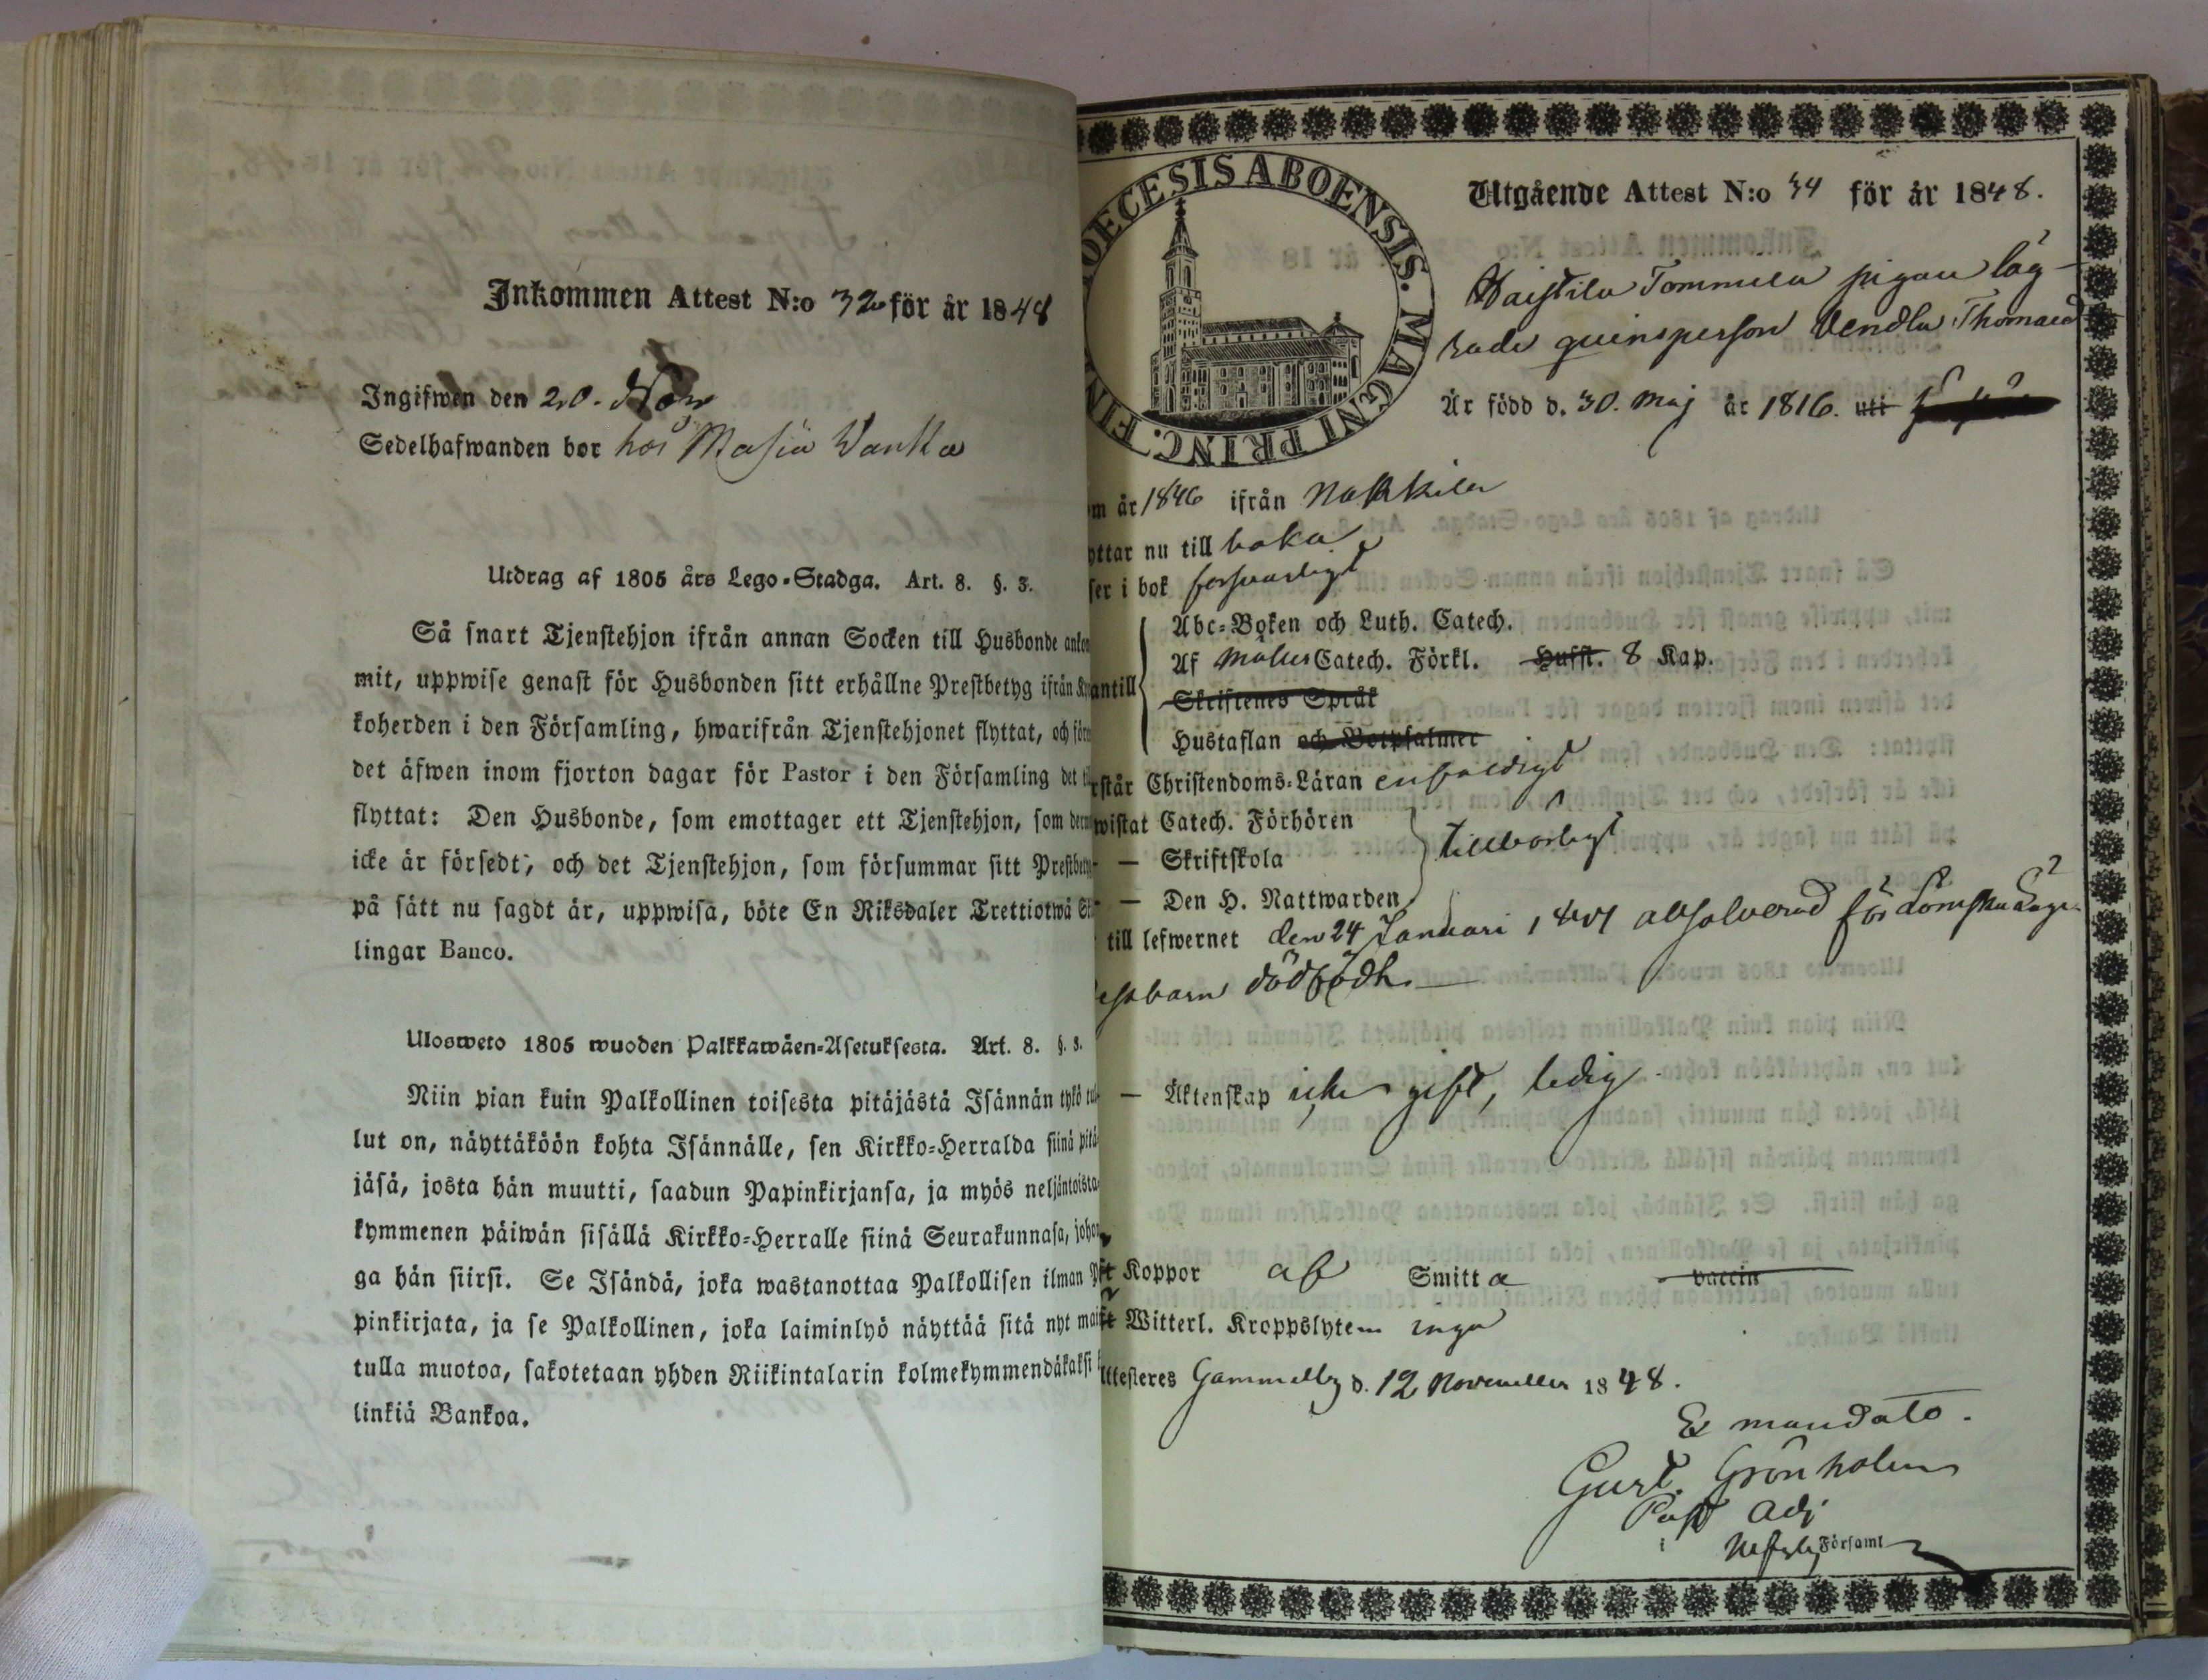 Inkommen Attest N:o 32 för år 1848
Ingifwen den 20. Nov
Sedelhafwanden bor hos Masia Wanka
Utdrag af 1805 års Lego-Stadga. Art. 8. §. 3.
Så snart Tjenstehjon ifrån annan Socken till Husbonde ankom
mit, uppwise genast för Husbonden sitt erhållne Prestbetyg ifrån Ky
koherden i den Församling, hwarifrån Tjenstehjonet flyttat, och före
det äfwen inom fjorton dagar för Pastor i den Församling det ti
flyttat: Den Husbonde, som emottager ett Tjenstehjon, som derm
icke är försedt, och det Tjenstehjon, som försummar sitt Prestbety
på sätt nu sagdt är, uppwisa, böte En Riksdaler Trettiotwå Sk
lingar Banco.
Ulosweto 1805 wuoden Palkkawäen-Asetuksesta. Art. 8. §. 3.
Niin pian kuin Palkollinen toisesta pitäjästä Isännän tykö tul-
lut on, näyttäköön kohta Isännälle, sen Kirkko-Herralda siinä pitä-
jäsä, josta hän muutti, saadun Papinkirjansa, ja myös neljäntoista-
kymmenen päiwän sisällä Kirkko-Herralle siinä Seurakunnasa, johon-
ga hän siirsi. Se Isändä, joka wastanottaa Palkollisen ilman Pa
pinkirjata, ja se Palkollinen, joka laiminlyö näyttää sitä nyt mai
tulla muotoa, sakotetaan yhden Riikintalarin kolmekymmendäkaksi k
linkiä Bankoa.
OECESIS ABOENSIS. MAGNI PRINC. FIN
Utgående Attest N:o 34 för år 1848.
Haistila Tommila pigan läg-
rade quinsperson Vendla Thomaed
Är född d. 30. Maj år 1816. uti
m år 1846 ifrån Nakkila
yttar nu till baka
ser i bok forsvarligt
Abc-Boken och Luth. Catech.
Af Möllers Catech. Förkl. Hufst. 8 Kap.
antill
Skriftenes Språk
Hustaflan och Botpsalmer
rstår Christendoms-Läran enfaldigt
wistat Catech. Förhören
— Skriftskola tillbörligt
— Den H. Nattwarden
till lefwernet den 24 Januari absolverad för
barn dödfödt.
— Äktenskap icke gift, ledig
ft Koppor af Smitta vaccin
ft Witterl. Kroppslyten inga
Attesteres Gammelby d. 12 November 1848.
Ex mandato.
Gust. Grönholm
Past Adj
i Ulfsby Församl